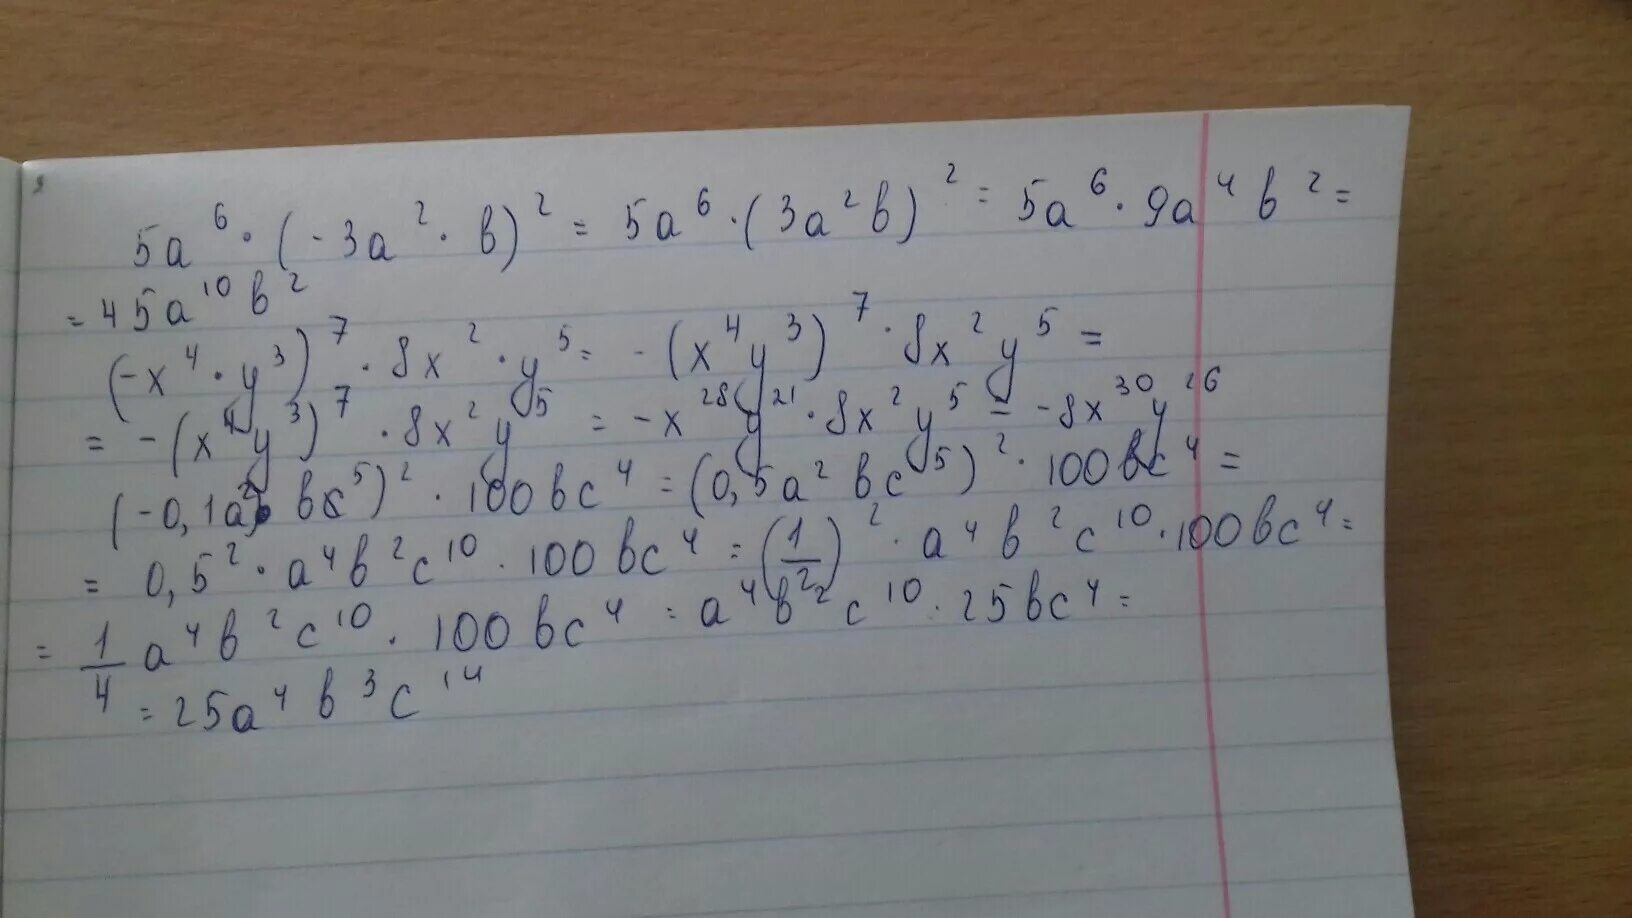 5a⁶ · (-3a² · b)² = 5a⁶ · (3a²b)² = 5a⁶ · 9a⁴b² =
= 45a¹⁰b²
(-x⁴ · y³)⁷ · 8x² · y⁵ = -(x⁴y³)⁷ · 8x²y⁵ =
= -(x⁴y³)⁷ · 8x²y⁵ = -x²⁸y²¹ · 8x²y⁵ = -8x³⁰y²⁶
(-0,1a² bc⁵)² · 100bc⁴ = (0,5a²bc⁵)² · 100bc⁴ =
= 0,5² · a⁴b²c¹⁰ · 100bc⁴ = (1/2)² · a⁴b²c¹⁰ · 100bc⁴ =
= 1/4 a⁴b²c¹⁰ · 100bc⁴ = a⁴b²c¹⁰ · 25bc⁴ =
= 25a⁴b³c¹⁴